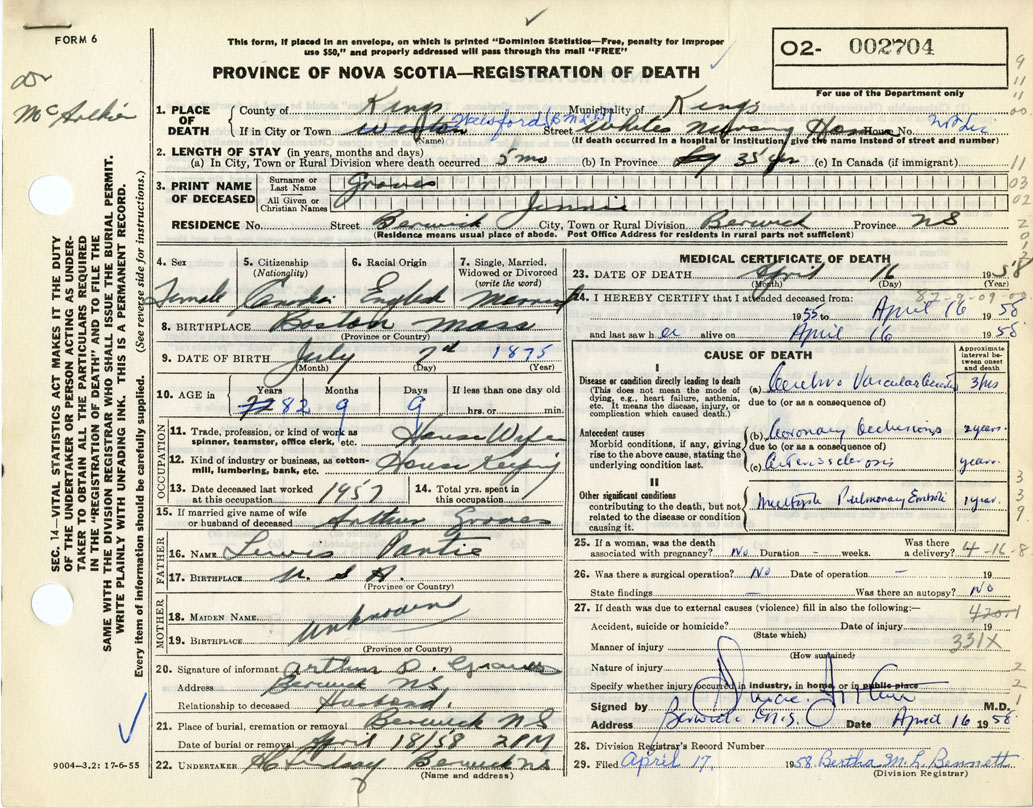 FORM 6
This form, if placed in an envelope, on which is printed "Dominion Statistics—Free, penalty for improper
use $50," and properly addressed will pass through the mail "FREE"
PROVINCE OF NOVA SCOTIA—REGISTRATION OF DEATH
O2- 002704
For use of the Department only
1. PLACE OF DEATH
County of Kings Municipality of Kings
If in City or Town Weston Welsford (B.M.L.B) Street Whites Nursing Home House No.
(Name) (If death occurred in a hospital or institution, give the name instead of street and number)
2. LENGTH OF STAY (in years, months and days)
(a) In City, Town or Rural Division where death occurred 5 mo (b) In Province 35 yrs (c) In Canada (if immigrant)
3. PRINT NAME OF DECEASED
Surname or Last Name Groves
All Given or Christian Names Jennie
RESIDENCE No. Street Berwick City, Town or Rural Division Berwick Province NS
(Residence means usual place of abode. Post Office Address for residents in rural parts not sufficient)
4. Sex Female
5. Citizenship (Nationality) Canda
6. Racial Origin English
7. Single, Married, Widowed or Divorced (write the word) Married
8. BIRTHPLACE Boston Mass
(Province or Country)
9. DATE OF BIRTH July 7th 1875
(Month) (Day) (Year)
10. AGE in Years Months Days If less than one day old
77 82 9 9 hrs. or min.
OCCUPATION
11. Trade, profession, or kind of work as spinner, teamster, office clerk, etc. House Wife
12. Kind of industry or business, as cotton-mill, lumbering, bank, etc. House Keeping
13. Date deceased last worked at this occupation 1957
14. Total yrs. spent in this occupation
15. If married give name of wife or husband of deceased Arthur Groves
FATHER
16. NAME Lewis
17. BIRTHPLACE U.S.A.
(Province or Country)
MOTHER
18. MAIDEN NAME
unknown
19. BIRTHPLACE
(Province or Country)
20. Signature of informant Arthur D. Groves
Address Berwick NS
Relationship to deceased Husband.
21. Place of burial, cremation or removal Berwick NS
Date of burial or removal April 18/58 2PM
22. UNDERTAKER Lindsay Berwick NS
(Name and address)
MEDICAL CERTIFICATE OF DEATH
23. DATE OF DEATH April 16 1958
(Month) (Day) (Year)
24. I HEREBY CERTIFY that I attended deceased from:
1955 to April 16 1958
and last saw her alive on April 16 1958
CAUSE OF DEATH
Approximate interval between onset and death
I
Disease or condition directly leading to death
(This does not mean the mode of dying, e.g., heart failure, asthenia, etc. It means the disease, injury, or complication which caused death.)
(a) Cerebro Vascular Accident
due to (or as a consequence of)
Antecedent causes
Morbid conditions, if any, giving rise to the above cause, stating the underlying condition last.
(b) Coronary Occlusions 2 years.
due to (or as a consequence of)
(c) Arteriosclerosis years.
II
Other significant conditions
contributing to the death, but not related to the disease or condition causing it.
Multiple Pulmonary Emboli 1 year.
25. If a woman, was the death associated with pregnancy? No Duration - weeks. Was there a delivery? 4-16-8
26. Was there a surgical operation? No Date of operation - 19
State findings - Was there an autopsy? No
27. If death was due to external causes (violence) fill in also the following:—
4201
Accident, suicide or homicide? Date of injury 19
(State which)
Manner of injury 331X
(How sustained)
Nature of injury
Specify whether injury occurred in industry, in home, or in public place
Signed by M.D.
Address Berwick, N.S. Date April 16 1958
28. Division Registrar's Record Number
29. Filed April 17, 1958. Bertha M. L. Bennett
(Division Registrar)
SEC. 14—VITAL STATISTICS ACT MAKES IT THE DUTY
OF THE UNDERTAKER OR PERSON ACTING AS UNDER-
TAKER TO OBTAIN ALL THE PARTICULARS REQUIRED
IN THE "REGISTRATION OF DEATH" AND TO FILE THE
SAME WITH THE DIVISION REGISTRAR WHO SHALL ISSUE THE BURIAL PERMIT.
WRITE PLAINLY WITH UNFADING INK. THIS IS A PERMANENT RECORD.
Every item of information should be carefully supplied. (See reverse side for instructions.)
9004—3.2: 17-6-55